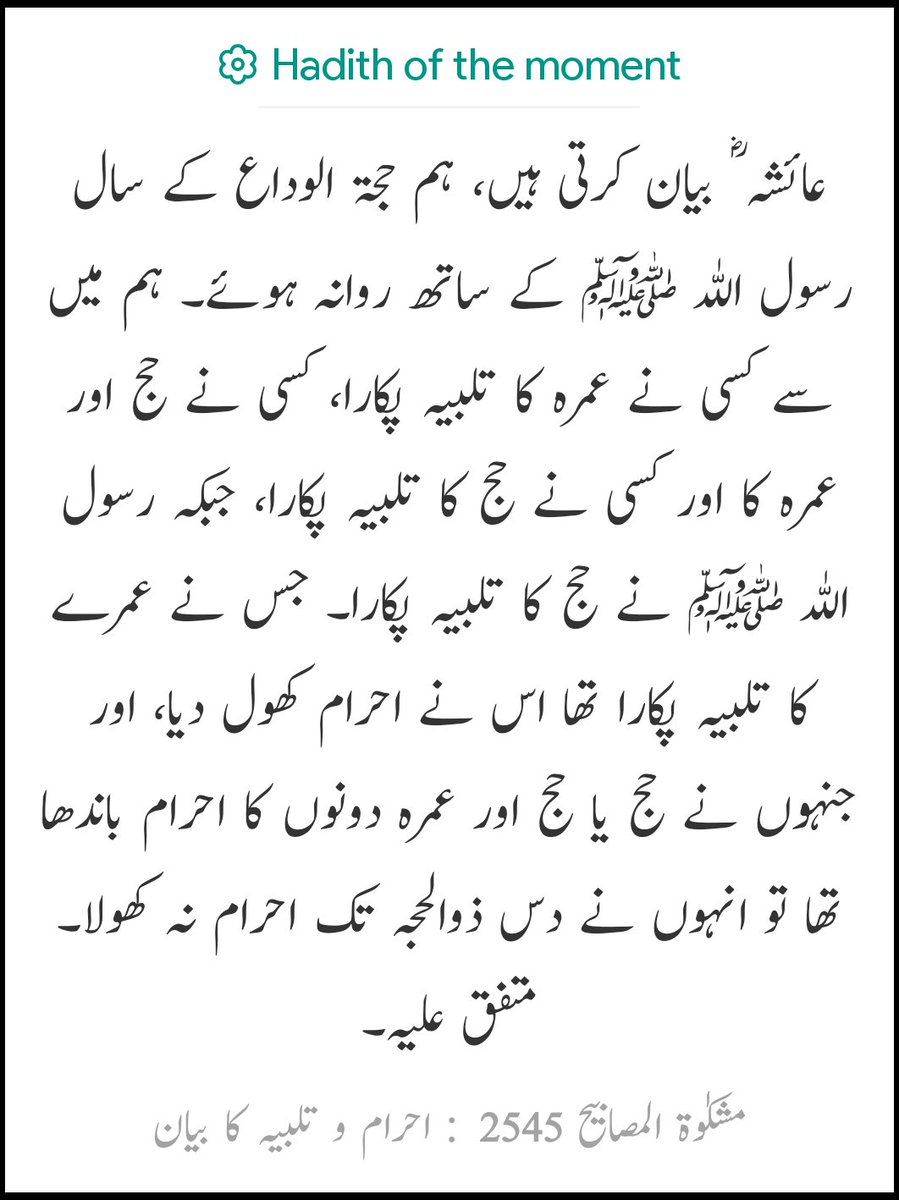 Hadith of the moment
عائشہ ؓ بیان کرتی ہیں، ہم حجۃ الوداع کے سال
رسول اللہ ﷺ کے ساتھ روانہ ہوئے۔ ہم میں
سے کسی نے عمرہ کا تلبیہ پکارا، کسی نے حج اور
عمرہ کا اور کسی نے حج کا تلبیہ پکارا، جبکہ رسول
اللہ ﷺ نے حج کا تلبیہ پکارا۔ جس نے عمرے
کا تلبیہ پکارا تھا اس نے احرام کھول دیا، اور
جنہوں نے حج یا حج اور عمرہ دونوں کا احرام باندھا
تھا تو انہوں نے دس ذوالحجہ تک احرام نہ کھولا۔
متفق علیہ۔
مشکوٰۃ المصابیح 2545 : احرام و تلبیہ کا بیان